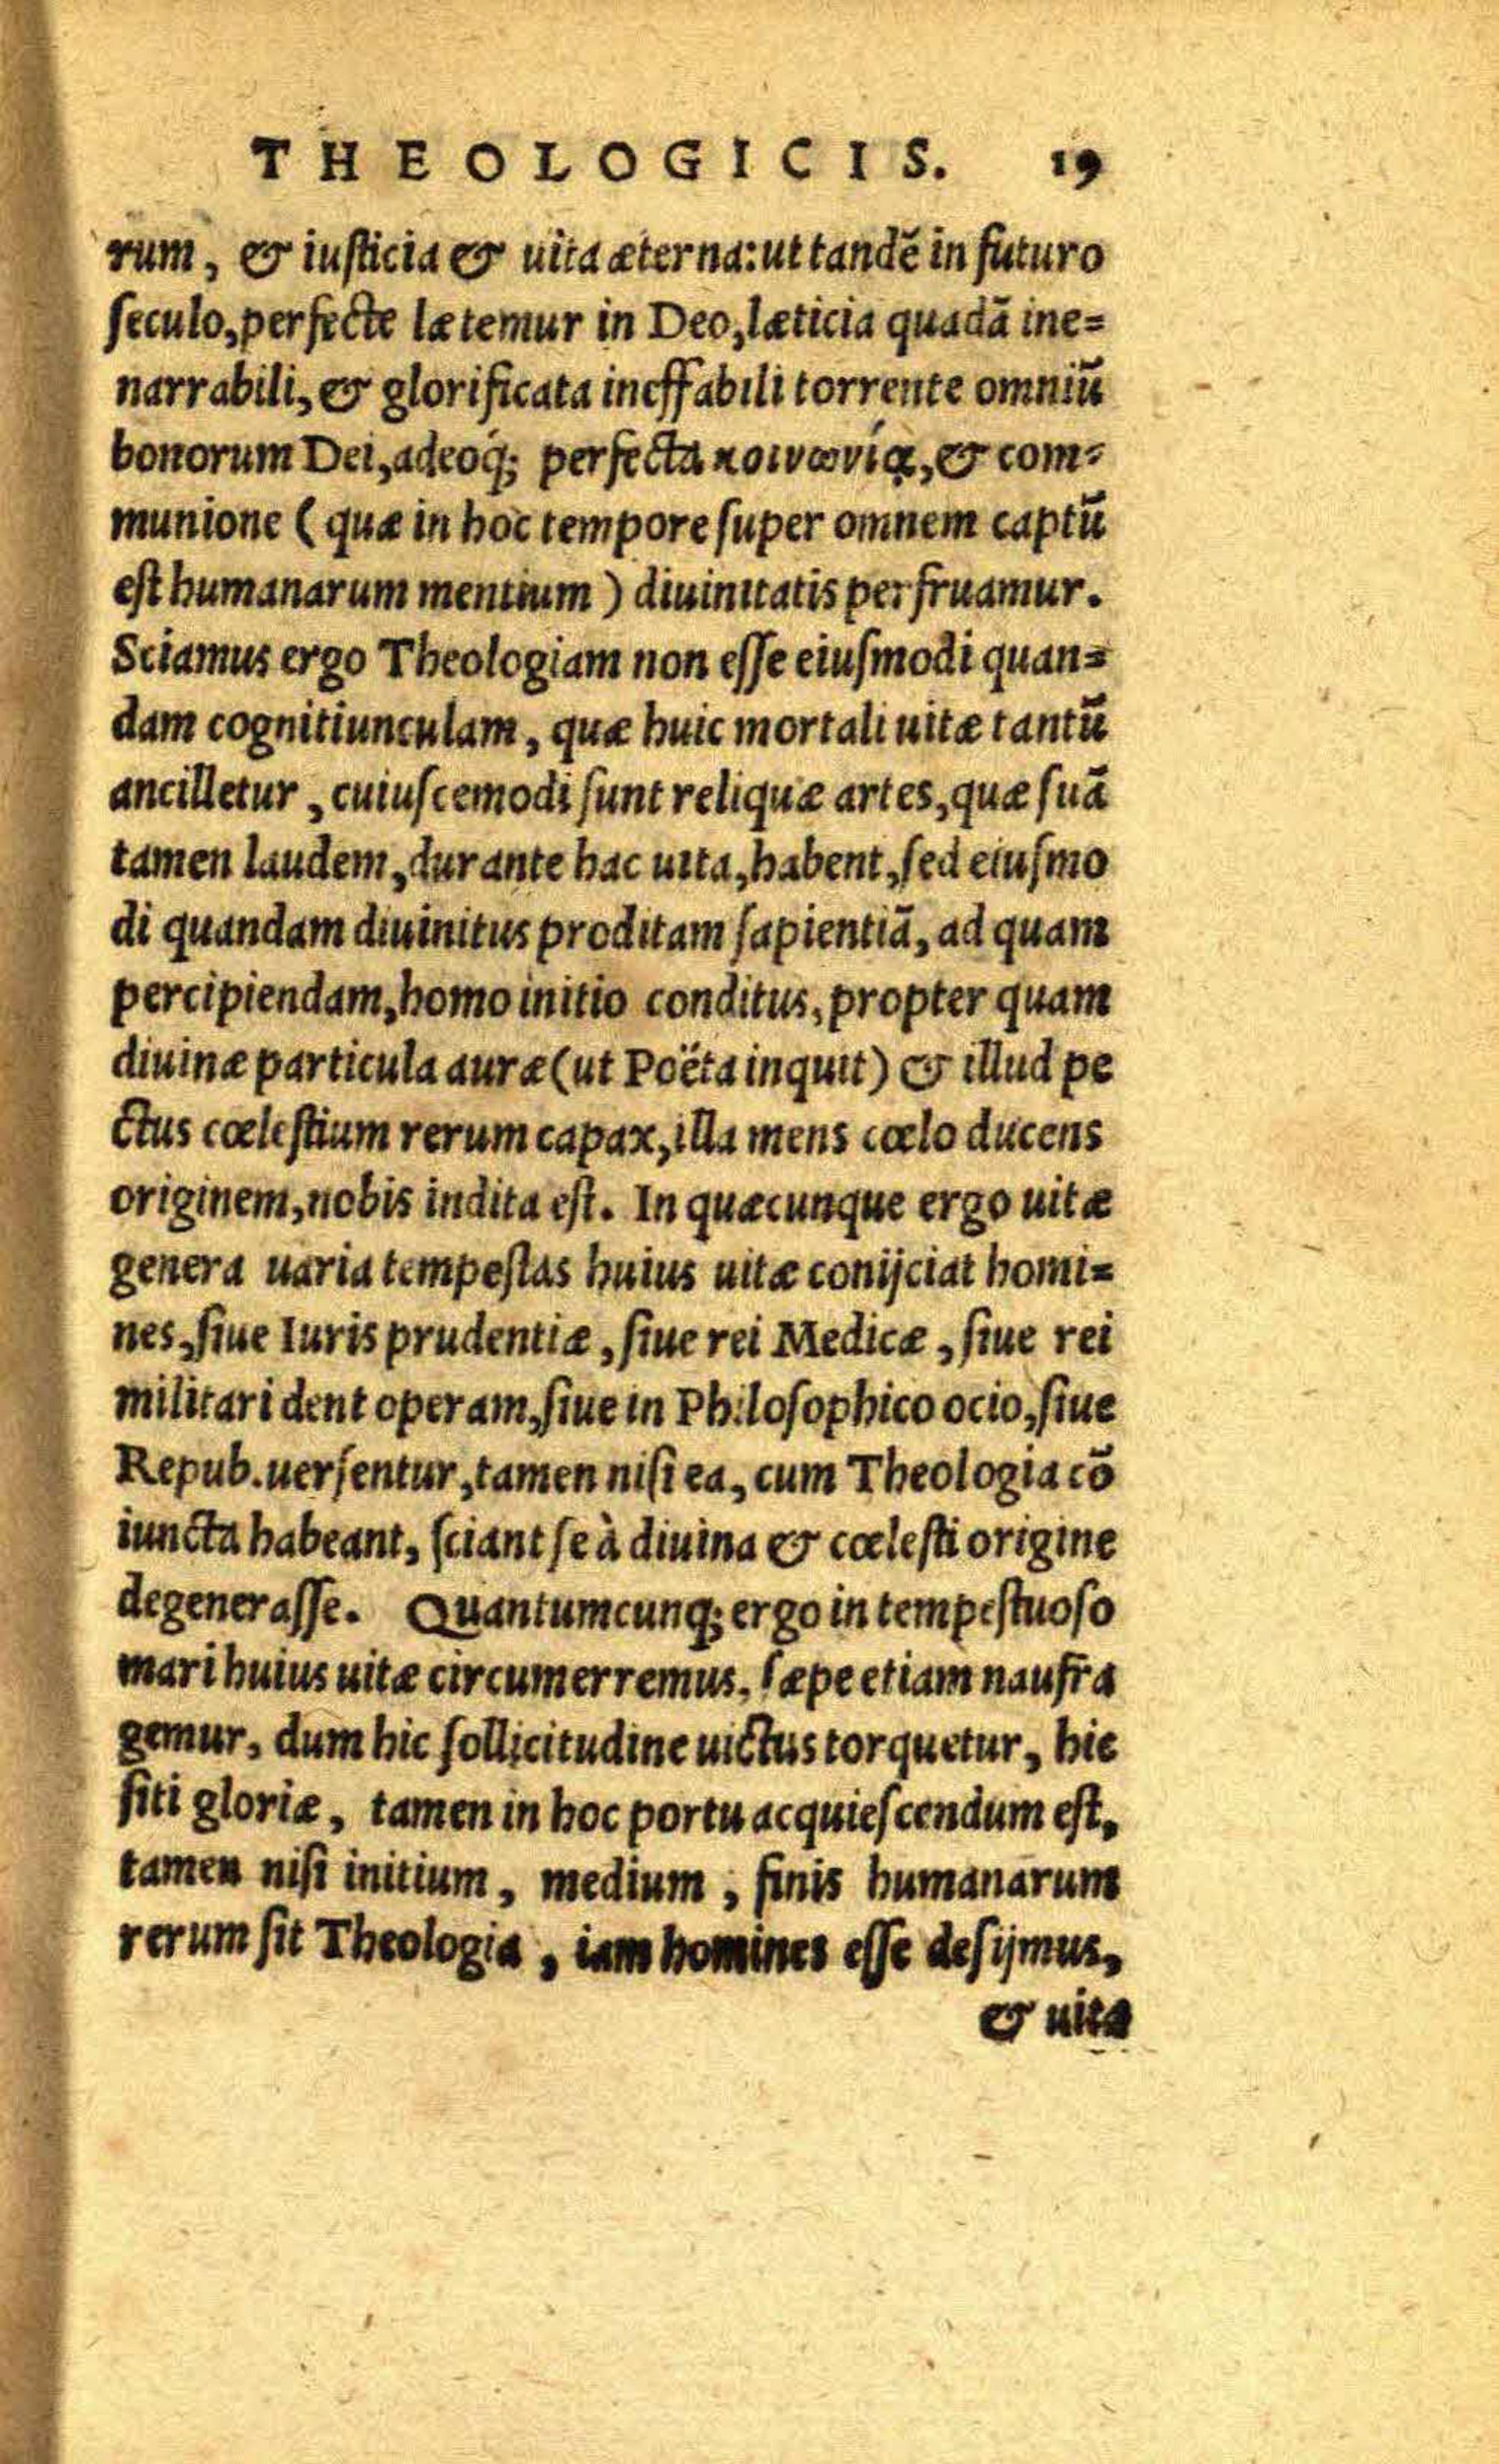 THEOLOGICIS. 19
rum, & iusticia & uita æterna: ut tandē in futuro
seculo, perfecte lætemur in Deo, læticia quadā ine=
narrabili, & glorificata ineffabili torrente omniū
bonorum Dei, adeoq́; perfecta κοινωνίᾳ, & com=
munione (quæ in hoc tempore super omnem captū
est humanarum mentium) diuinitatis perfruamur.
Sciamus ergo Theologiam non esse eiusmodi quan=
dam cognitiunculam, quæ huic mortali uitæ tantū
ancilletur, cuiuscemodi sunt reliquæ artes, quæ suā
tamen laudem, durante hac uita, habent, sed eiusmo
di quandam diuinitus proditam sapientiā, ad quam
percipiendam, homo initio conditus, propter quam
diuinæ particula auræ (ut Poëta inquit) & illud pe
ctus cœlestium rerum capax, illa mens cœlo ducens
originem, nobis indita est. In quæcunque ergo uitæ
genera uaria tempestas huius uitæ conijciat homi=
nes, siue Iuris prudentiæ, siue rei Medicæ, siue rei
militari dent operam, siue in Philosophico ocio, siue
Repub. uersentur, tamen nisi ea, cum Theologia cō
iuncta habeant, sciant se à diuina & cœlesti origine
degenerasse. Quantumcunq; ergo in tempestuoso
mari huius uitæ circumerremus, sæpe etiam naufra
gemur, dum hic sollicitudine uictus torquetur, hic
siti gloriæ, tamen in hoc portu acquiescendum est,
tamen nisi initium, medium, finis humanarum
rerum sit Theologia, iam homines esse desijmus,
& uita